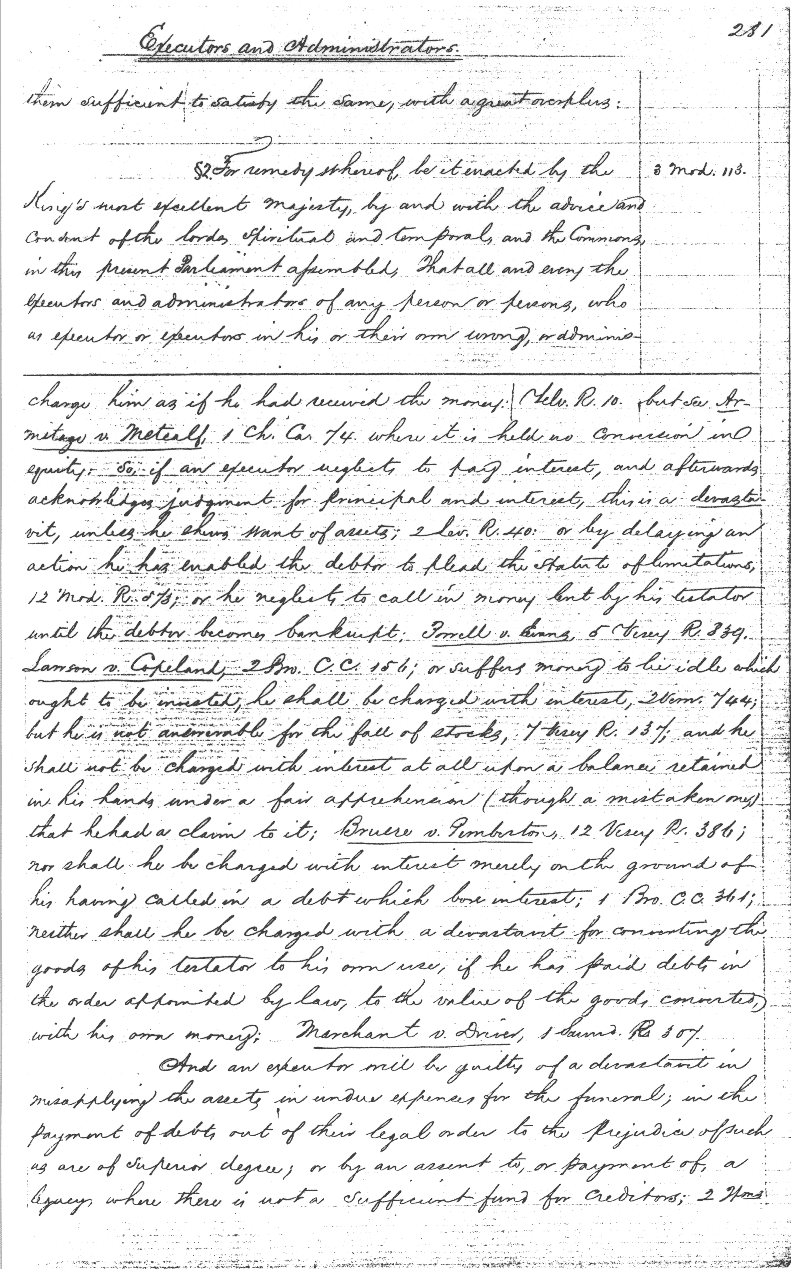 281
Executors and Administrators.
them sufficient to satisfy the same, with a great overplus:
§2. For remedy whereof, be it enacted by the
3 Mod. 113.
King's most excellent Majesty, by and with the advice and
Consent of the lords Spiritual and temporal, and the Commons,
in this present Parliament assembled, That all and every the
executors and administrators of any person or persons, who
as executor or executors in his or their own wrong, or adminis-
charge him as if he had received the money: Yelv. R. 10. but see Ar-
mitage v. Metcalf, 1 Ch. Ca. 74. where it is held no conversion in
equity. So, if an executor neglects to pay interest, and afterwards
acknowledges judgment for principal and interest, this is a devasta-
vit, unless he shews want of assets; 2 Lev. R. 40: or by delaying an
action he has enabled the debtor to plead the statute of limitations,
12 Mod. R. 573; or he neglects to call in money lent by his testator
until the debtor becomes bankrupt; Powell v. Evans, 5 Vesey R. 839.
Lawson v. Copeland, 2 Bro. C.C. 156; or suffers money to lie idle which
ought to be invested, he shall be charged with interest, 2 Vern. 744;
but he is not answerable for the fall of stocks, 7 Vesey R. 137; and he
shall not be charged with interest at all upon a balance retained
in his hands under a fair apprehension (though a mistaken one)
that he had a claim to it; Bruere v. Pemberton, 12 Vesey R. 386;
nor shall he be charged with interest merely on the ground of
his having called in a debt which bore interest; 1 Bro. C.C. 361;
neither shall he be charged with a devastavit for converting the
goods of his testator to his own use, if he has paid debts in
the order appointed by law, to the value of the goods converted,
with his own money; Merchant v. Driver, 1 Saund. R. 307.
And an executor will be guilty of a devastavit in
misapplying the assets in undue expenses for the funeral; in the
payment of debts out of their legal order to the prejudice of such
as are of superior degree; or by an assent to, or payment of, a
legacy, where there is not a sufficient fund for creditors; 2